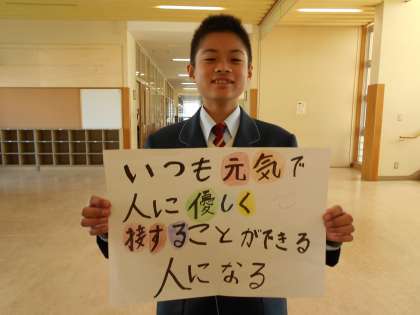 いつも元気で
人に優しく
接することができる
人になる